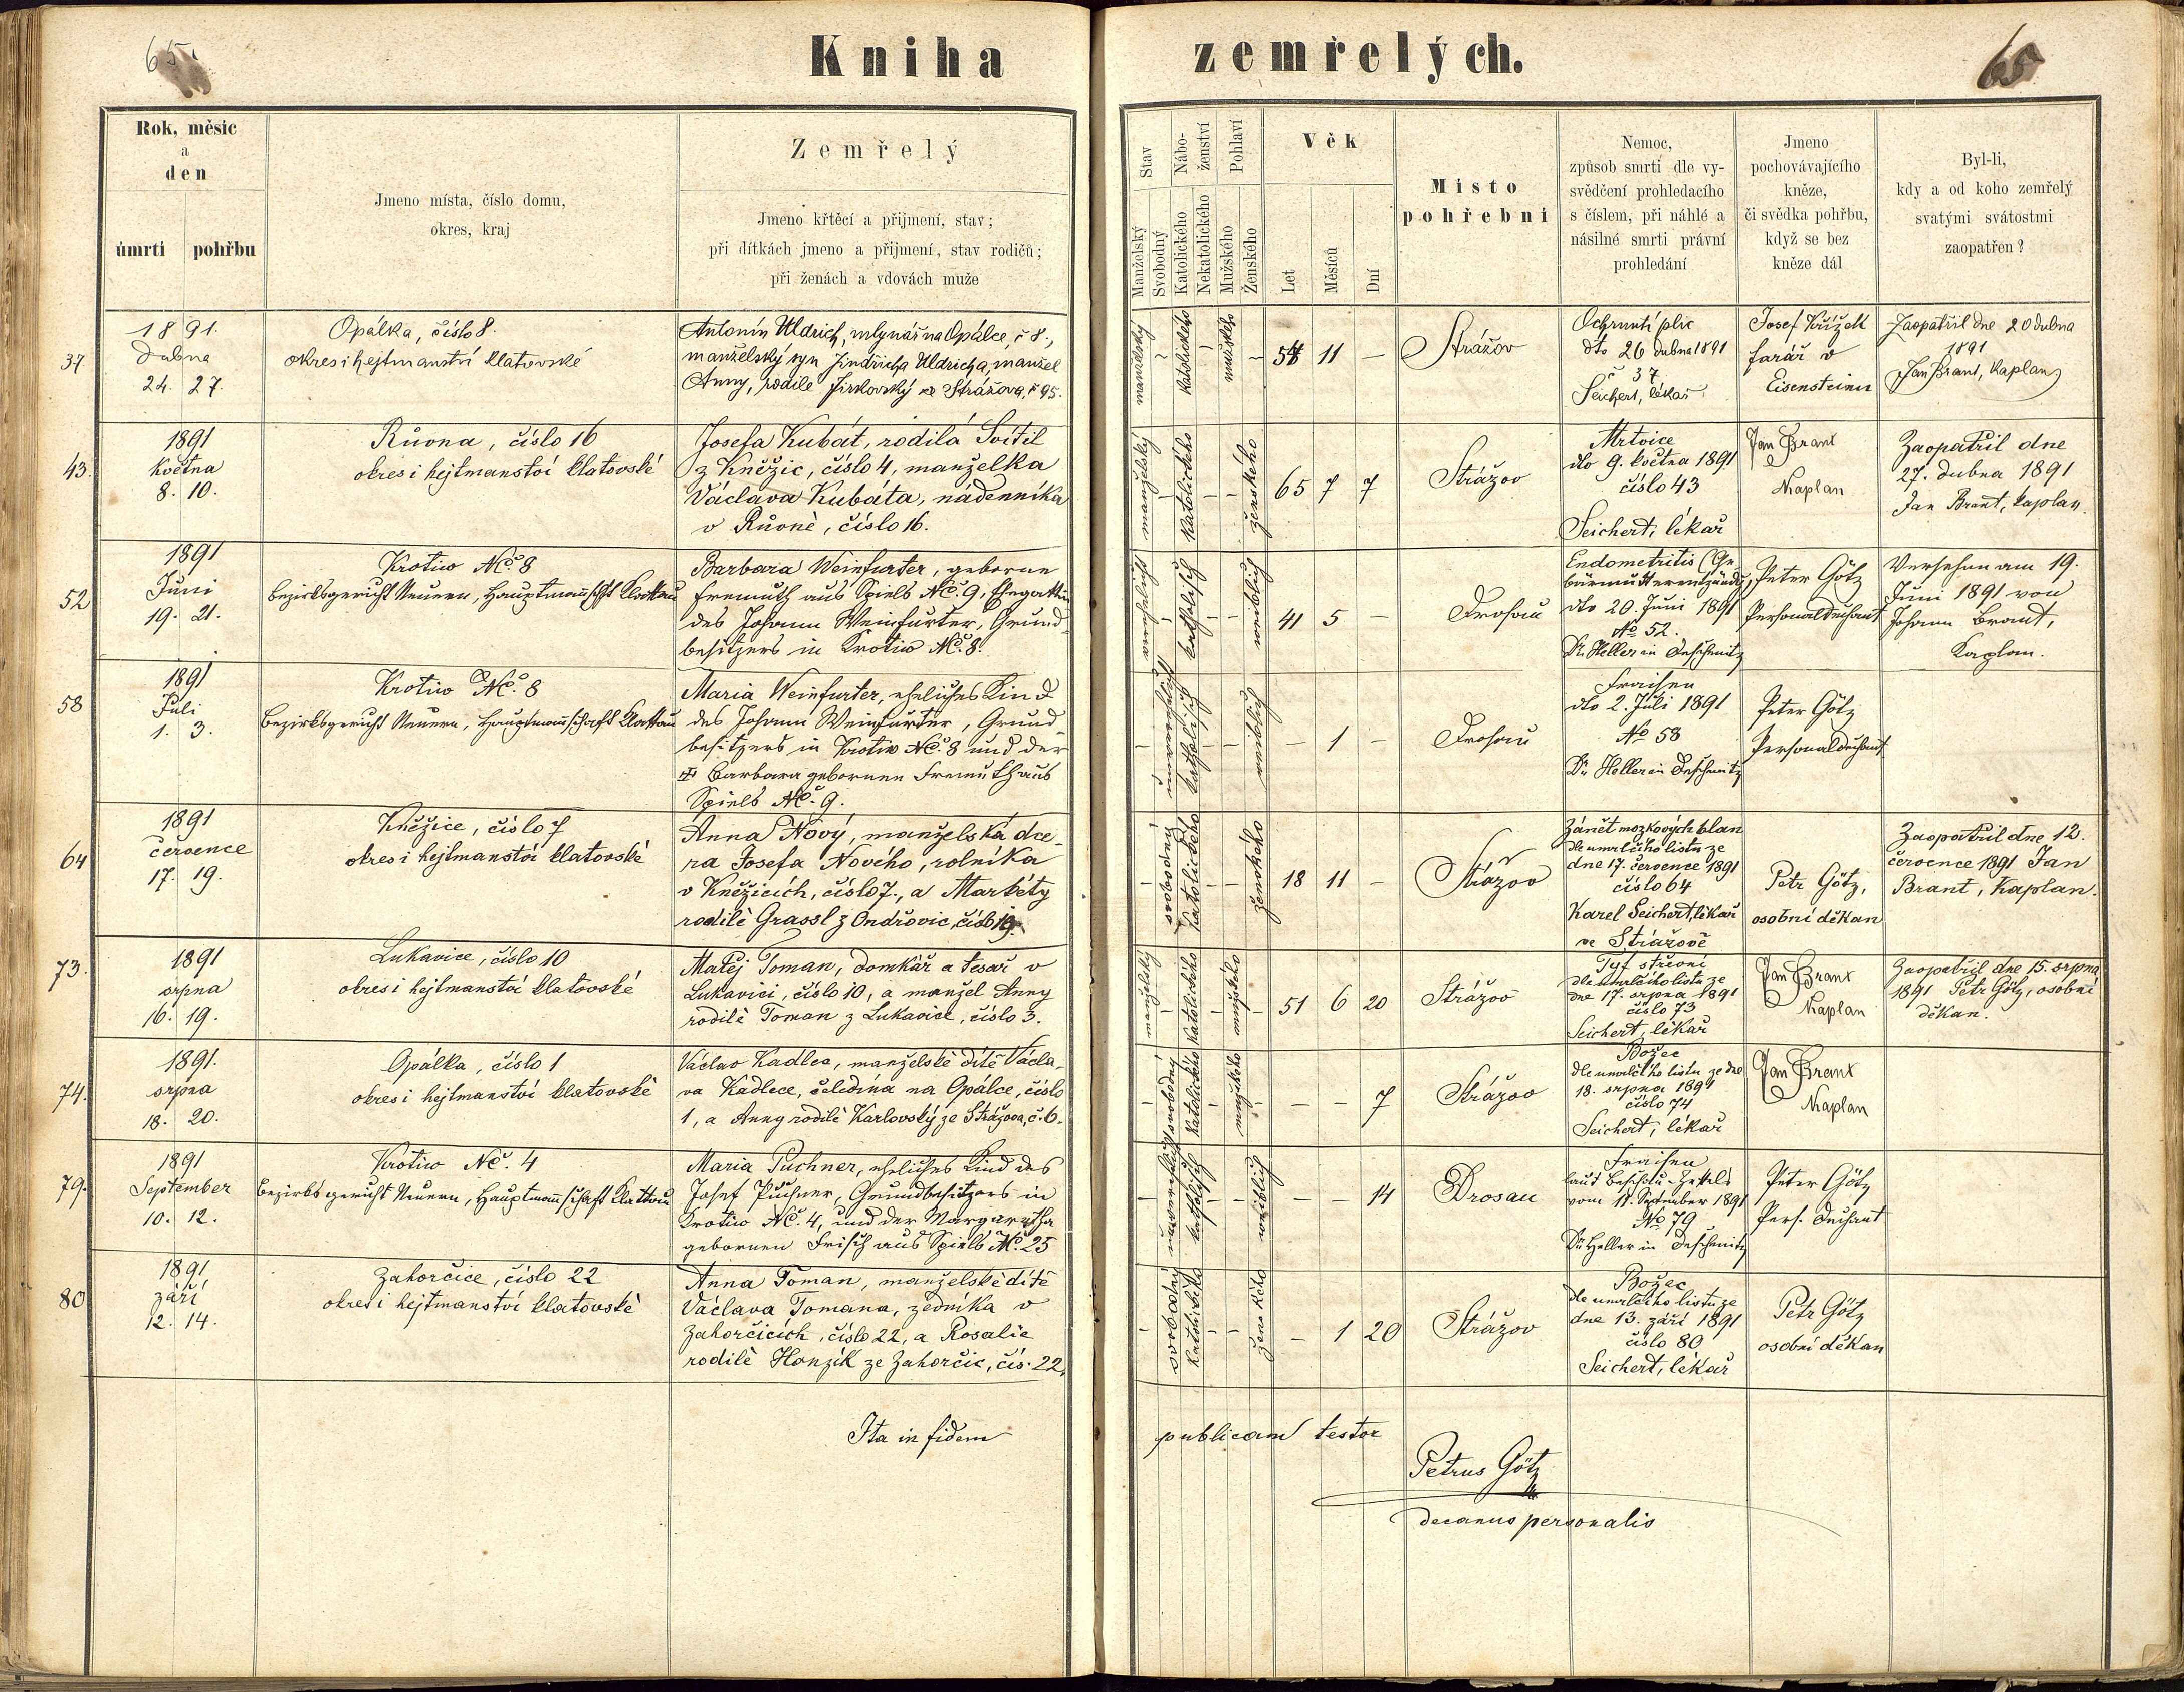 65.
Kniha zemřelých.
65
Rok, měsíc
a
den
úmrtí pohřbu
Jmeno místa, číslo domu,
okres, kraj
Zemřelý
Jmeno křtěcí a přijmení, stav;
při dítkách jmeno a přijmení, stav rodičů;
při ženách a vdovách muže
Stav
Manželský
Svobodný
Nábo-
ženství
Katolického
Nekatolického
Pohlaví
Mužského
Ženského
Věk
Let
Měsíců
Dní
Místo
pohřební
Nemoc,
způsob smrti dle vy-
svědčení prohledacího
s číslem, při náhlé a
násilné smrti právní
prohledání
Jmeno
pochovávajícího
kněze,
či svědka pohřbu,
když se bez
kněze dál
Byl-li,
kdy a od koho zemřelý
svatými svátostmi
zaopatřen?
37.
1891.
Dubna
24. 27.
Opálka, číslo 8.
okres i hejtmanství klatovské
Antonín Uldrich, mlynář na Opálce, č 8.,
manželský syn Jindřicha Uldricha, manžel
Anny, rodilé Jirkovský ze Strážova, č 95.
manželský
katolického
mužského
54 11 –
Strážov
Ochrnutí plic
dto 26 dubna 1891
č 37
Seichert, lékař
Josef Křížek
farář v
Eisensteinu
Zaopatřil dne 20 dubna
1891
Jan Brant, Kaplan
43.
1891
Května
8. 10.
Růvna, číslo 16
okres i hejtmanství klatovské
Josefa Kubát, rodilá Svítil
z Kněžic, číslo 4, manželka
Václava Kubáta, nádenníka
v Růvně, číslo 16.
manželský
katolického
ženského
65 7 7
Strážov
Mrtvice
dto 9. května 1891
číslo 43
Seichert, lékař
Jan Brant
Kaplan
Zaopatřil dne
27. dubna 1891
Jan Brant, kaplan.
52
1891
Juni
19. 21.
Krotiw Nč. 8
Bezirksgericht Neuern, Hauptmannschft Klattau
Barbara Weinfurter, geborne
Fremuth aus Spiels Nč. 9, Ehegattin
des Johann Weinfurter, Grund-
besitzers in Krotiw Nč. 8.
verehelicht
katholisch
weiblich
41 5 –
Drosau
Endometritis (Ge-
bärmutterentzündg)
dto 20. Juni 1891
No 52.
Dr. Heller in Deschenitz
Peter Götz
Personaldechant
Versehen am 19.
Juni 1891 von
Johann Brant,
Kaplan.
58
1891
Juli
1. 3.
Krotiw Nč. 8
Bezirksgericht Neuern, Hauptmannschaft Klattau
Maria Weinfurter, eheliches Kind
des Johann Weinfurter, Grund-
besitzers in Krotiw Nč. 8 und der
✠ Barbara gebornen Fremuth aus
Spiels Nč. 9.
unverehelicht
katholisch
weiblich
– 1 –
Drosau
Fraisen
dto 2. Juli 1891
No 58
Dr. Heller in Deschenitz
Peter Götz
Personaldechant
64
1891
července
17. 19.
Kněžice, číslo 7
okres i hejtmanství klatovské
Anna Nový, manželská dce-
ra Josefa Nového, rolníka
v Kněžicích, číslo 7., a Markéty
rodilé Grassl z Ondřovic, číslo 19.
svobodný
katolického
ženského
18 11 –
Strážov
Zánět mozkových blan
dle umrlčího listu ze
dne 17. července 1891
číslo 64
Karel Seichert, lékař
ve Strážově
Petr Götz,
osobní děkan
Zaopatřil dne 12.
července 1891 Jan
Brant, Kaplan.
73.
1891
srpna
16. 19.
Lukavice, číslo 10
okres i hejtmanství klatovské
Matěj Toman, domkář a tesař v
Lukavici, číslo 10, a manžel Anny
rodilé Toman z Lukavice, číslo 3.
manželský
katolického
mužského
51 6 20
Strážov
Tyf střevní
dle umrlčího listu ze
dne 17. srpna 1891
číslo 73
Seichert, lékař
Jan Brant
Kaplan
Zaopatřil dne 15. srpna
1891 Petr Götz, osobní
děkan.
74.
1891.
srpna
18. 20.
Opálka, číslo 1
okres i hejtmanství klatovské
Václav Kadlec, manželské dítě Václa-
va Kadlece, čeledína na Opálce, číslo
1, a Anny rodilé Karlovský ze Strážova, č. 6.
svobodný
katolického
mužského
– – 7
Strážov
Božec
dle umrlčího listu ze dne
18. srpna 1891
číslo 74
Seichert, lékař
Jan Brant
Kaplan
79.
1891
September
10. 12.
Krotiw Nč. 4
Bezirksgericht Neuern, Hauptmannschaft Klattau
Maria Puchner, eheliches Kind des
Josef Puchner, Grundbesitzers in
Krotiw Nč. 4, und der Margaretha
gebornen Frisch aus Spiels Nč. 25
unverehelicht
katholisch
weiblich
– – 14
Drosau
Fraisen
laut Beschau-Zettels
vom 11. September 1891
No 79
Dr. Heller in Deschenitz
Peter Götz
Pers. Dechant
80
1891
září
12. 14.
Zahorčice, číslo 22
okres i hejtmanství klatovské
Anna Toman, manželské dítě
Václava Tomana, zedníka v
Zahorčicích, číslo 22, a Rosalie
rodilé Honzík ze Zahorčic, čís. 22.
svobodný
katolického
ženského
– 1 20
Strážov
Božec
dle umrlčího listu ze
dne 13. září 1891
číslo 80
Seichert, lékař
Petr Götz
osobní děkan
Ita in fidem publicam testor
Petrus Götz
decanus personalis